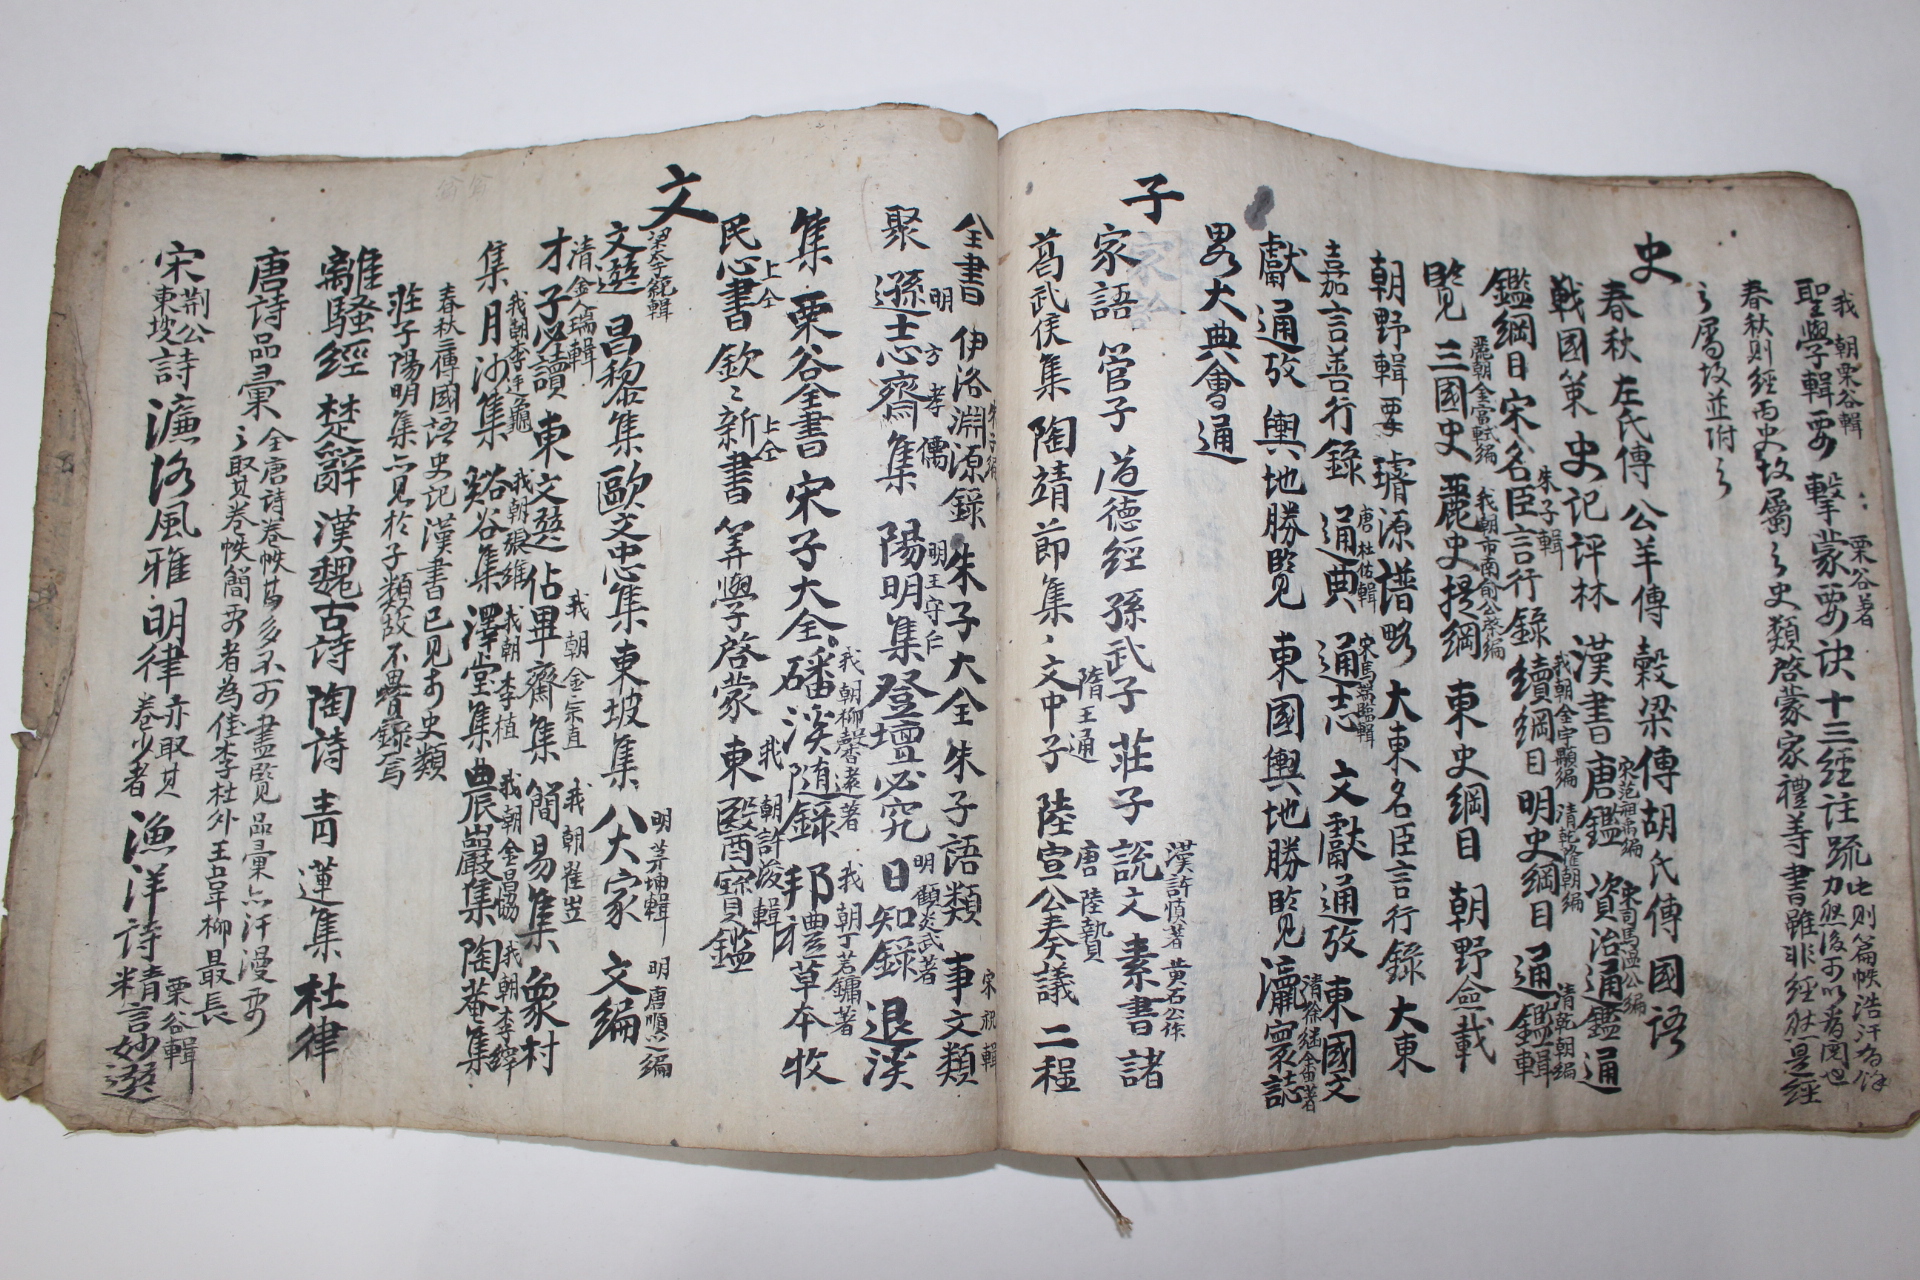 我朝栗谷輯
聖學輯要 擊蒙要訣 十三經註疏
栗谷著
此則篇帙浩汗
力然後可以
啓蒙家禮等書雖非經然是經
春秋則經而史故屬之史類
之屬故並附之
史
春秋 左氏傳 公羊傳 穀梁傳 胡氏傳 國語
戰國策 史記評林 漢書 唐鑑 資治通鑑 通
宋范祖禹編 宋司馬溫公編
鑑綱目 宋名臣言行錄 續綱目 明史綱目 通鑑輯
朱子輯 我朝金宇顒編 清乾隆朝編 清乾朝編
覽 三國史 麗史提綱 東史綱目 朝野僉載
麗朝金富軾編 我朝市南俞公棨編
朝野輯要 璿源譜略 大東名臣言行錄 大東
嘉言善行錄 通典 通志 文獻通攷 東國文
唐杜佑輯 宋馬端臨輯
獻通攷 輿地勝覽 東國輿地勝覽 瀛寰誌
清徐繼畬著
畧 大典會通
子
家語 管子 道德經 孫武子 莊子 說文 素書 諸
漢許愼著 黃石公作
葛武侯集 陶靖節集 文中子 陸宣公奏議 二程
隋王通 唐陸贄
全書 伊洛淵源錄 朱子大全 朱子語類 事文類
朱子編 宋祝輯
聚 遜志齋集 陽明集 登壇必究 日知錄 退溪
明方孝儒 明王守仁 明顧炎武著
集 栗谷全書 宋子大全 磻溪隨錄 邦禮草本 牧
我朝柳馨遠著 我朝丁若鏞著
民心書 欽欽新書 筭學啓蒙 東醫寶鑑
上仝 上仝 我朝許浚輯
文
文選 昌黎集 歐文忠集 東坡集 八大家 文編
明茅坤輯 明唐順之編
才子必讀 東文選 佔畢齋集 簡易集 象村
清金人瑞輯 我朝金宗直 我朝崔岦
集 月沙集 谿谷集 澤堂集 農巖集 陶菴集
我朝李廷龜 我朝張維 我朝李植 我朝金昌協 我朝李縡
春秋三傳國語史記漢書已見於史類
莊子陽明集亦見於子類故不疊錄焉
離騷經 楚辭 漢魏古詩 陶詩 青蓮集 杜律
唐詩品彙 全唐詩卷帙甚多不可盡覽品彙亦汗漫
之取其卷帙簡要者為佳李杜外王韋柳最長
宋荊公東坡詩 濂洛風雅 明律 亦取其卷少者 漁洋詩 精言妙選
栗谷輯